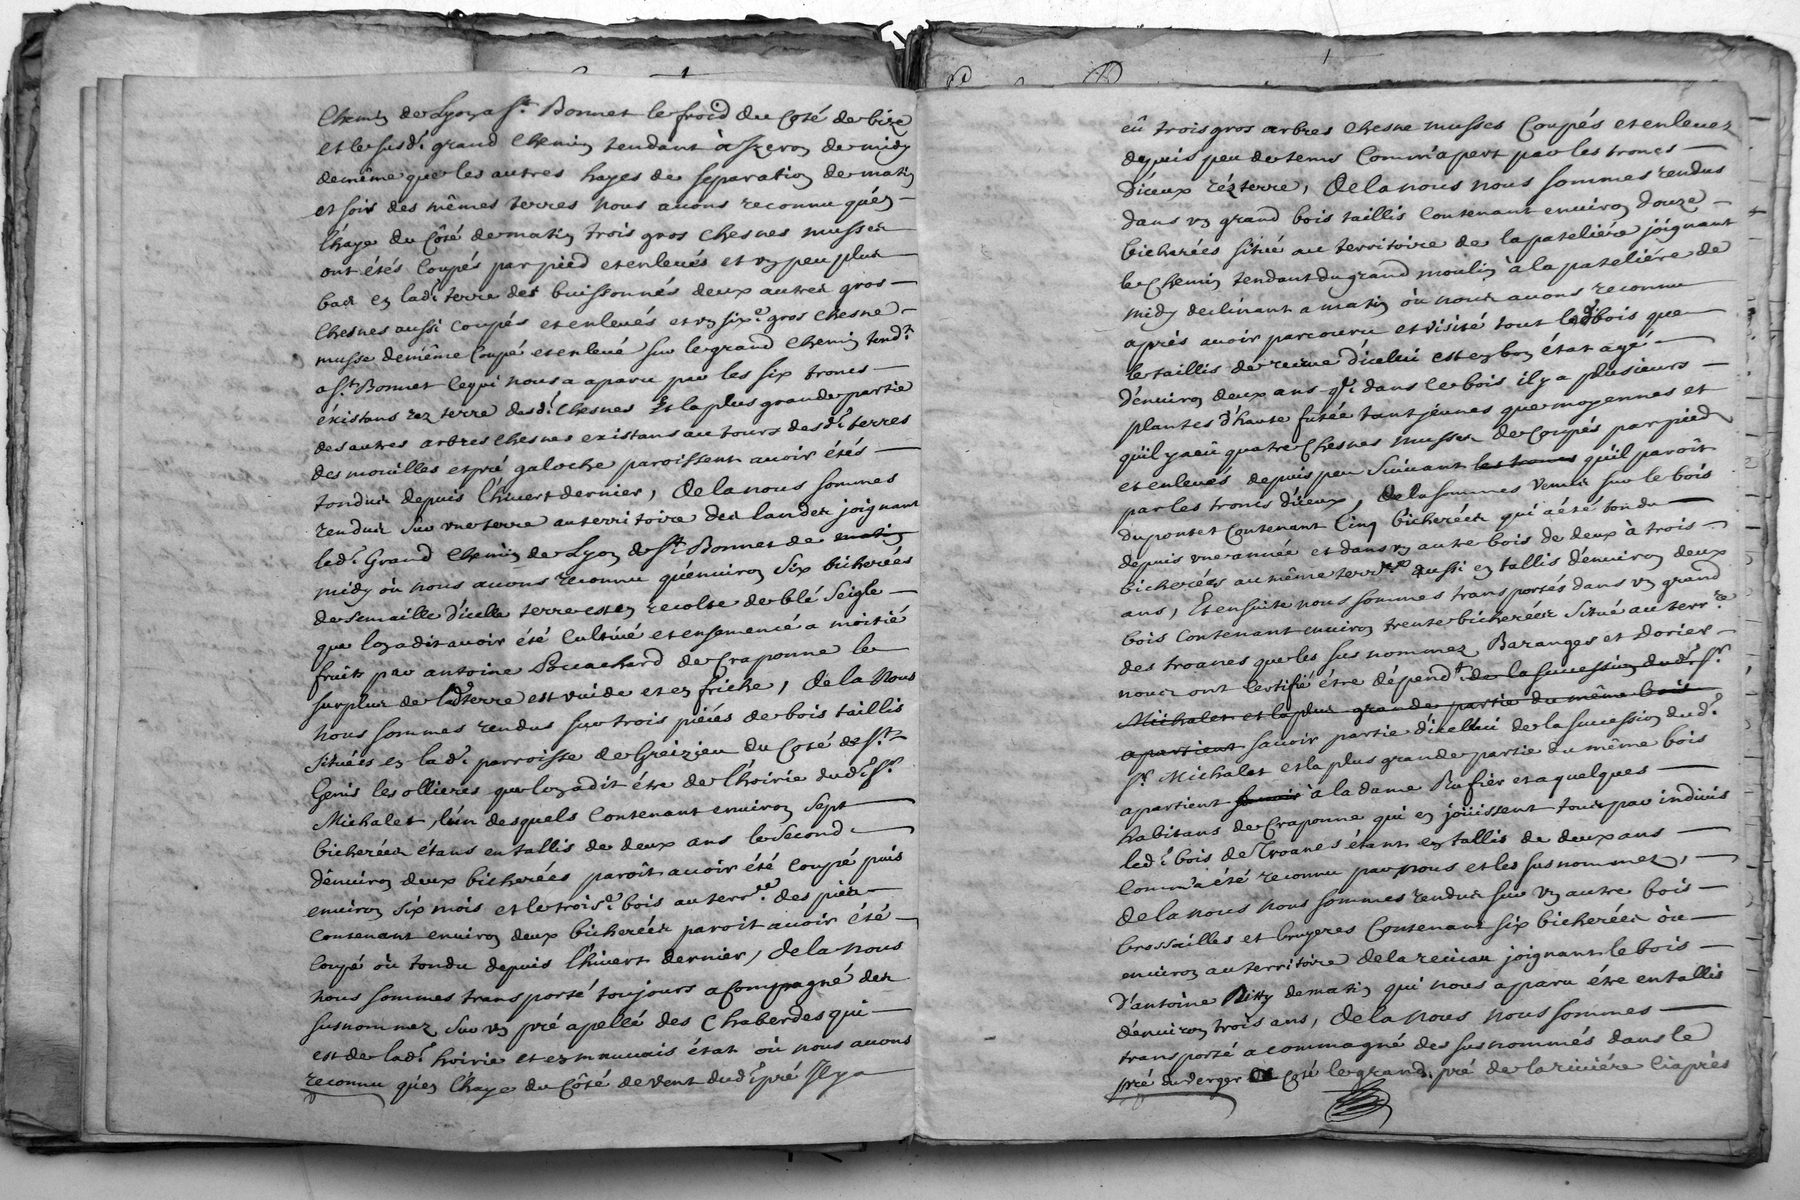 Chemin de Lyon a St. Bonnet le froid du Coté de bize
et le susdt. grand Chemin tendant à Izeron de midy
de même que les autres hayes de separation de matin
et soir des mêmes terres nous avons reconnu qu'en
l'haye du Côté de matin trois gros chesnes musses
ont étés Coupés par pied et enlevés et un peu plus
bas en ladt. terre des buissonnés deux autres gros
Chesnes aussi coupés et enlevés et un sixe. gros chesne
musse de même Coupé et enlevé sur le grand Chemin tendt.
a St. Bonnet ce qui nous a aparu par les six troncs
éxistans rez terre desdt. Chesnes Et la plus grande partie
des autres arbres chesnes existans au tours desdt. terres
des mouilles et pré galoche paroissent avoir étés
tondus depuis l'hivert dernier, De la nous sommes
rendus sur une terre au territoire des landes joignant
ledt. Grand Chemin de Lyon de St. Bonnet de matin
midy où nous avons reconnu qu'environ Six bicherées
de semaille d'icelle terre est en recolte de blé Seigle
que lon a dit avoir été Cultivé et ensemencé a moitié
fruits par antoine Bouchard de Craponne le
surplus de ladt. terre est vuide et en friche, De la Nous
nous sommes rendus sur trois piéces de bois taillis
Situées en ladt. parroisse de Greizieu du Coté de St.
Genis les ollieres que lon a dit étre de l'hoirie dudt. Sr.
Michalet, l'un desquels Contenant environ Sept
bicherées étans en tallis de deux ans le Second
d'environ deux bicherées paroît avoir été coupé puis
environ Six mois et le troise. bois au terrre. des pies
contenant environ deux bicherées paroit avoir été
Coupé où tondu depuis l'hivert dernier, De la nous
nous sommes transporté toujours acompagné des
susnommez Sur un pré apellé des Chaberdes qui
est de ladt. hoirie et en mauvais état où nous avons
reconnu qu'en l'haye du Côté de vent dudt. pré Il y a
eû trois gros arbres chesne musses Coupés et enlevez
depuis peu de tems Comm'apert par les troncs
d'iceux réz terre, De la nous nous sommes rendus
dans un grand bois taillis Contenant environ douze
bicherées situé au territoire de la pateliére joignant
le Chemin tendant du grand moulin à la pateliére de
midy declinant a matin où nous avons reconnu
après avoir parcouru et visité tout ledt. bois que
le taillis de d'icelui est en bon état agé
d'environ deux ans qe. dans le bois il y a plusieurs
plantes d'haute futée tant jeunes que moyennes et
qu'il y a eû quatre Chesnes musses de Coupés par pied
et enlevés depuis peu Suivant les troncs qu'il paroît
par les troncs d'iceux, De la sommes Venus sur le bois
du pontet Contenant Cinq bicherées qui a été tondu
depuis une année et dans un autre bois de deux à trois
bicherées au même terrre. aussi en tallis d'environ deux
ans, Et ensuite nous sommes transportés dans un grand
bois Contenant environ trente bicherées Situé au terrre.
des troanes que les sus nommez Baranges et Dorier
nous ont Certifié étre dépendt. de la sucession dudt. Sr.
Michalet et la plus grande partie du même bois
apartient savoir partie d'icellui de la sucession dudt.
Sr. Michalet et la plus grande partie du même bois
apartient à la dame Rufier et a quelques
habitans de Craponne qui en joüissent tous par indivis
ledt. bois de Troanes étant en tallis de deux ans
Comm'a été reconnu par nous et les susnommez,
De la nous nous sommes rendus sur un autre bois
brossailles et bruyeres Contenant six bicherées où
environ au territoire de la joignant le bois
d'antoine Pitty de matin qui nous a paru étre en tallis
d'environ trois ans, De la Nous nous sommes
transporté acommagné des susnommés dans le
pré du verger Coté le grand pré de la riviére Ciaprés